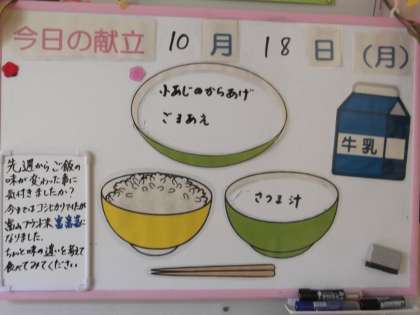 今日の献立 10月18日(月)
小あじのからあげ
ごまあえ
牛乳
さつま汁
先週からご飯の
味が変わった事に
気付きましたか?
今まではコシヒカリでしたが
富山ブランド米 富富富に
なりました。
ちょっと味の違いを考えて
食べてみてください。